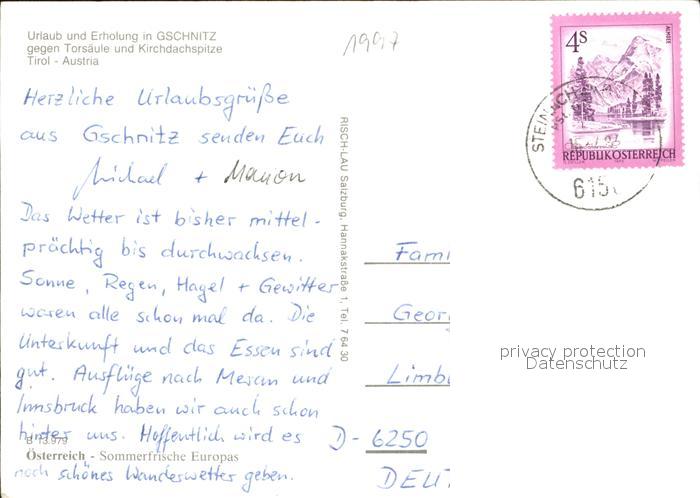 Urlaub und Erholung in GSCHNITZ
gegen Torsäule und Kirchdachspitze
Tirol - Austria
1997
Herzliche Urlaubsgrüße
aus Gschnitz senden Euch
Michael + Manon
Das Wetter ist bisher mittel-
prächtig bis durchwachsen.
Sonne, Regen, Hagel + Gewitter
waren alle schon mal da. Die
Unterkunft und das Essen sind
gut. Ausflüge nach Meran und
Innsbruck haben wir auch schon
hinter uns. Hoffentlich wird es
Österreich - Sommerfrische Europas
noch schönes Wanderwetter geben.
RISCH-LAU Salzburg, Hannakstraße 1, Tel. 7 64 30
4 S
ALMSEE
REPUBLIK ÖSTERREICH
STEINACH
615
Fami
Georg
Limbu
D - 6250
DEUT
privacy protection
Datenschutz